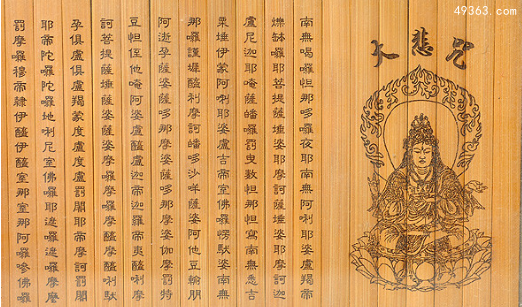 49363.com
大悲咒
南無喝囉怛那哆囉夜耶南無阿唎耶婆盧羯帝
爍缽囉耶菩提薩埵婆耶摩訶薩埵婆耶摩訶迦
盧尼迦耶唵薩皤囉罰曳數怛那怛寫南無悉吉
栗埵伊蒙阿唎耶婆盧吉帝室佛囉楞馱婆南無
那囉謹墀醯利摩訶皤哆沙咩薩婆阿他豆輸朋
阿逝孕薩婆薩哆那摩婆薩哆那摩婆伽摩罰特
豆怛侄他唵阿婆盧醯盧迦帝迦羅帝夷醯唎摩
訶菩提薩埵薩婆薩婆摩囉摩囉摩醯摩醯唎馱
孕俱盧俱盧羯蒙度盧度盧罰闍耶帝摩訶罰闍
耶帝陀囉陀囉地唎尼室佛囉耶遮囉遮囉摩麼
罰摩囉穆帝隸伊醯伊醯室那室那阿囉嘇佛囉